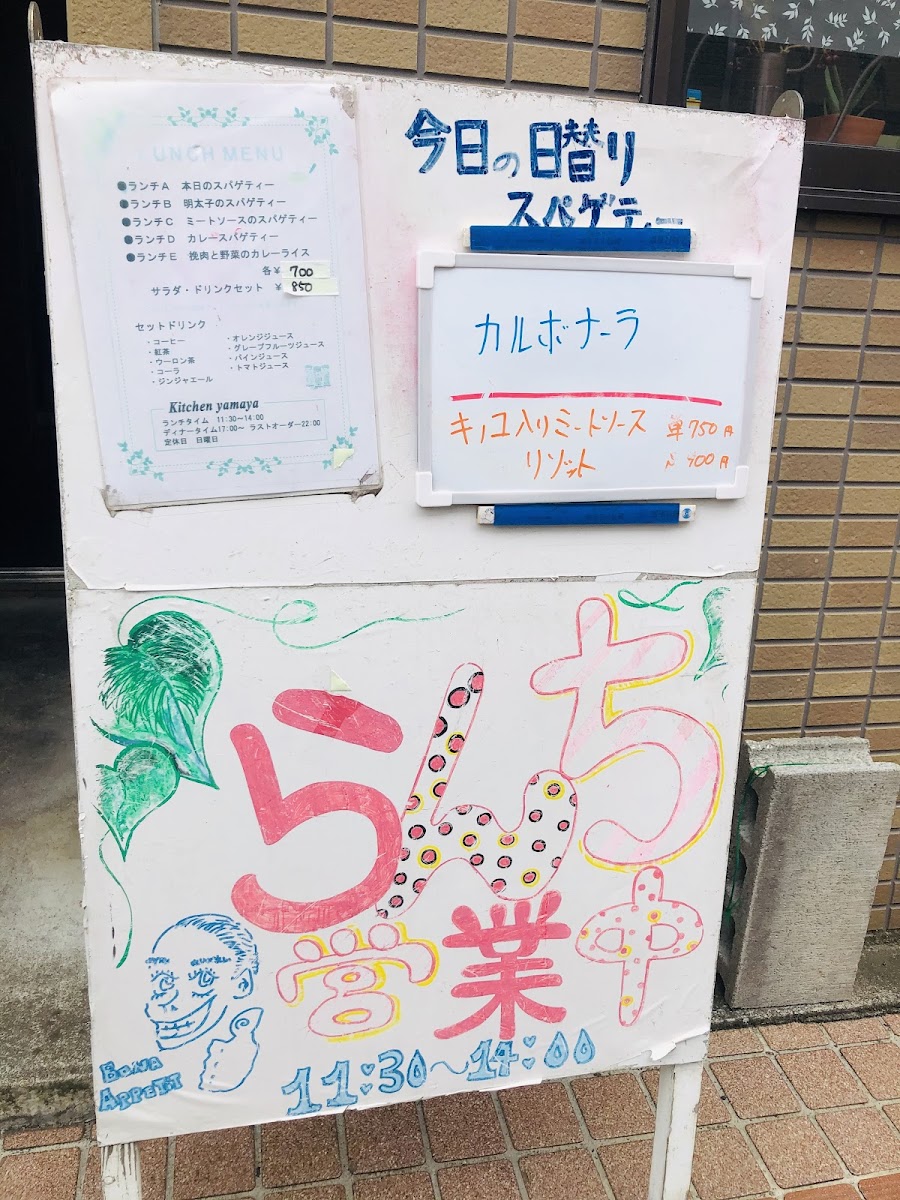 UNCH MENU
●ランチA 本日のスパゲティー
●ランチB 明太子のスパゲティー
●ランチC ミートソースのスパゲティー
●ランチD カレースパゲティー
●ランチE 挽肉と野菜のカレーライス
各¥ 700
サラダ・ドリンクセット ¥ 850
セットドリンク
・コーヒー
・紅茶
・ウーロン茶
・コーラ
・ジンジャエール
・オレンジジュース
・グレープフルーツジュース
・パインジュース
・トマトジュース
Kitchen yamaya
ランチタイム 11:30~14:00
ディナータイム17:00~ ラストオーダー22:00
定休日 日曜日
今日の日替り
スパゲティー
カルボナーラ
キノコ入りミートソース
リゾット
単750円
900円
らんち
営業中
11:30~14:00
BONA
APPETIT